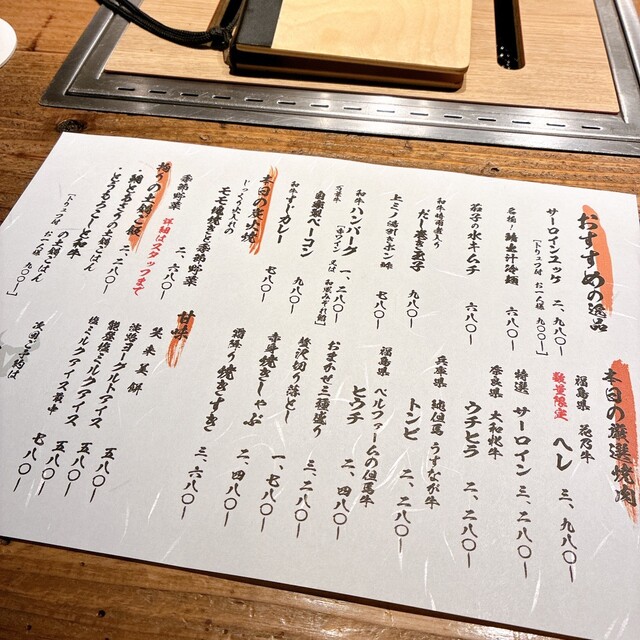 おすすめの逸品
サーロインユッケ 二、九八〇ー
【トリュフ付 お一人様 九〇〇ー】
名物！鯛出汁冷麺 六八〇ー
茄子の水キムチ 六八〇ー
和牛時雨煮入り
だし巻き玉子
上ミノ湯引きポン酢 七八〇ー
和牛ハンバーグ 一、二八〇ー
自家製ベーコン 九八〇ー
和牛すじカレー 七八〇ー
本日の炭火焼
じっくり火入れの
モモ塊焼きと季節野菜 二、六八〇ー
季節野菜
詳細はスタッフまで
拘りの土鍋ご飯
鯛ともずくの土鍋ごはん 二、二八〇ー
とうもろこしと和牛の土鍋ごはん
【トリュフ付 お一人様 九〇〇ー】
本日の厳選焼肉
福島県 花乃牛
数量限定 ヘレ 三、九八〇ー
特選 サーロイン 三、二八〇ー
奈良県 大和榛牛
ウチヒラ 二、二八〇ー
兵庫県 純但馬うすなが牛
トンビ 二、二八〇ー
福島県 ベルファームの但馬牛
ヒウチ 二、四八〇ー
おまかせ三種盛り 二、四八〇ー
贅沢切り落とし 一、二八〇ー
赤身焼きしゃぶ 七八〇ー
霜降り焼きすき 三、六八〇ー
甘味
笑来美餅
淡路ヨーグルトアイス 五八〇ー
能登塩ミルクアイス 五八〇ー
塩ミルクアイス最中 七八〇ー
次回ご予約は